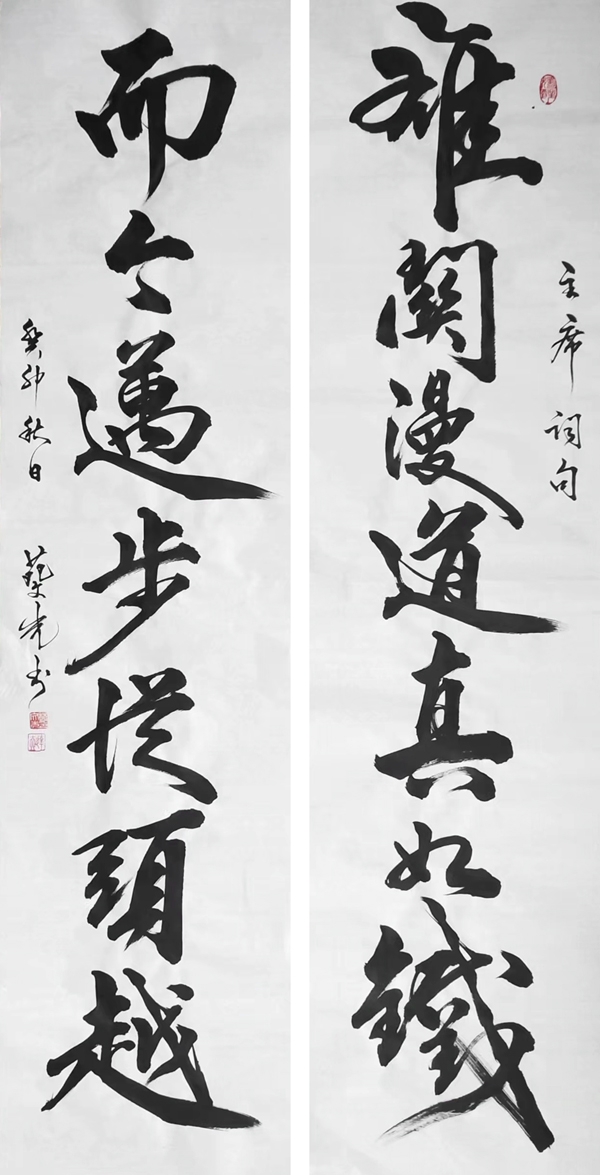 主席詞句
雄關漫道真如鐵
而今邁步從頭越
癸卯秋日
光书